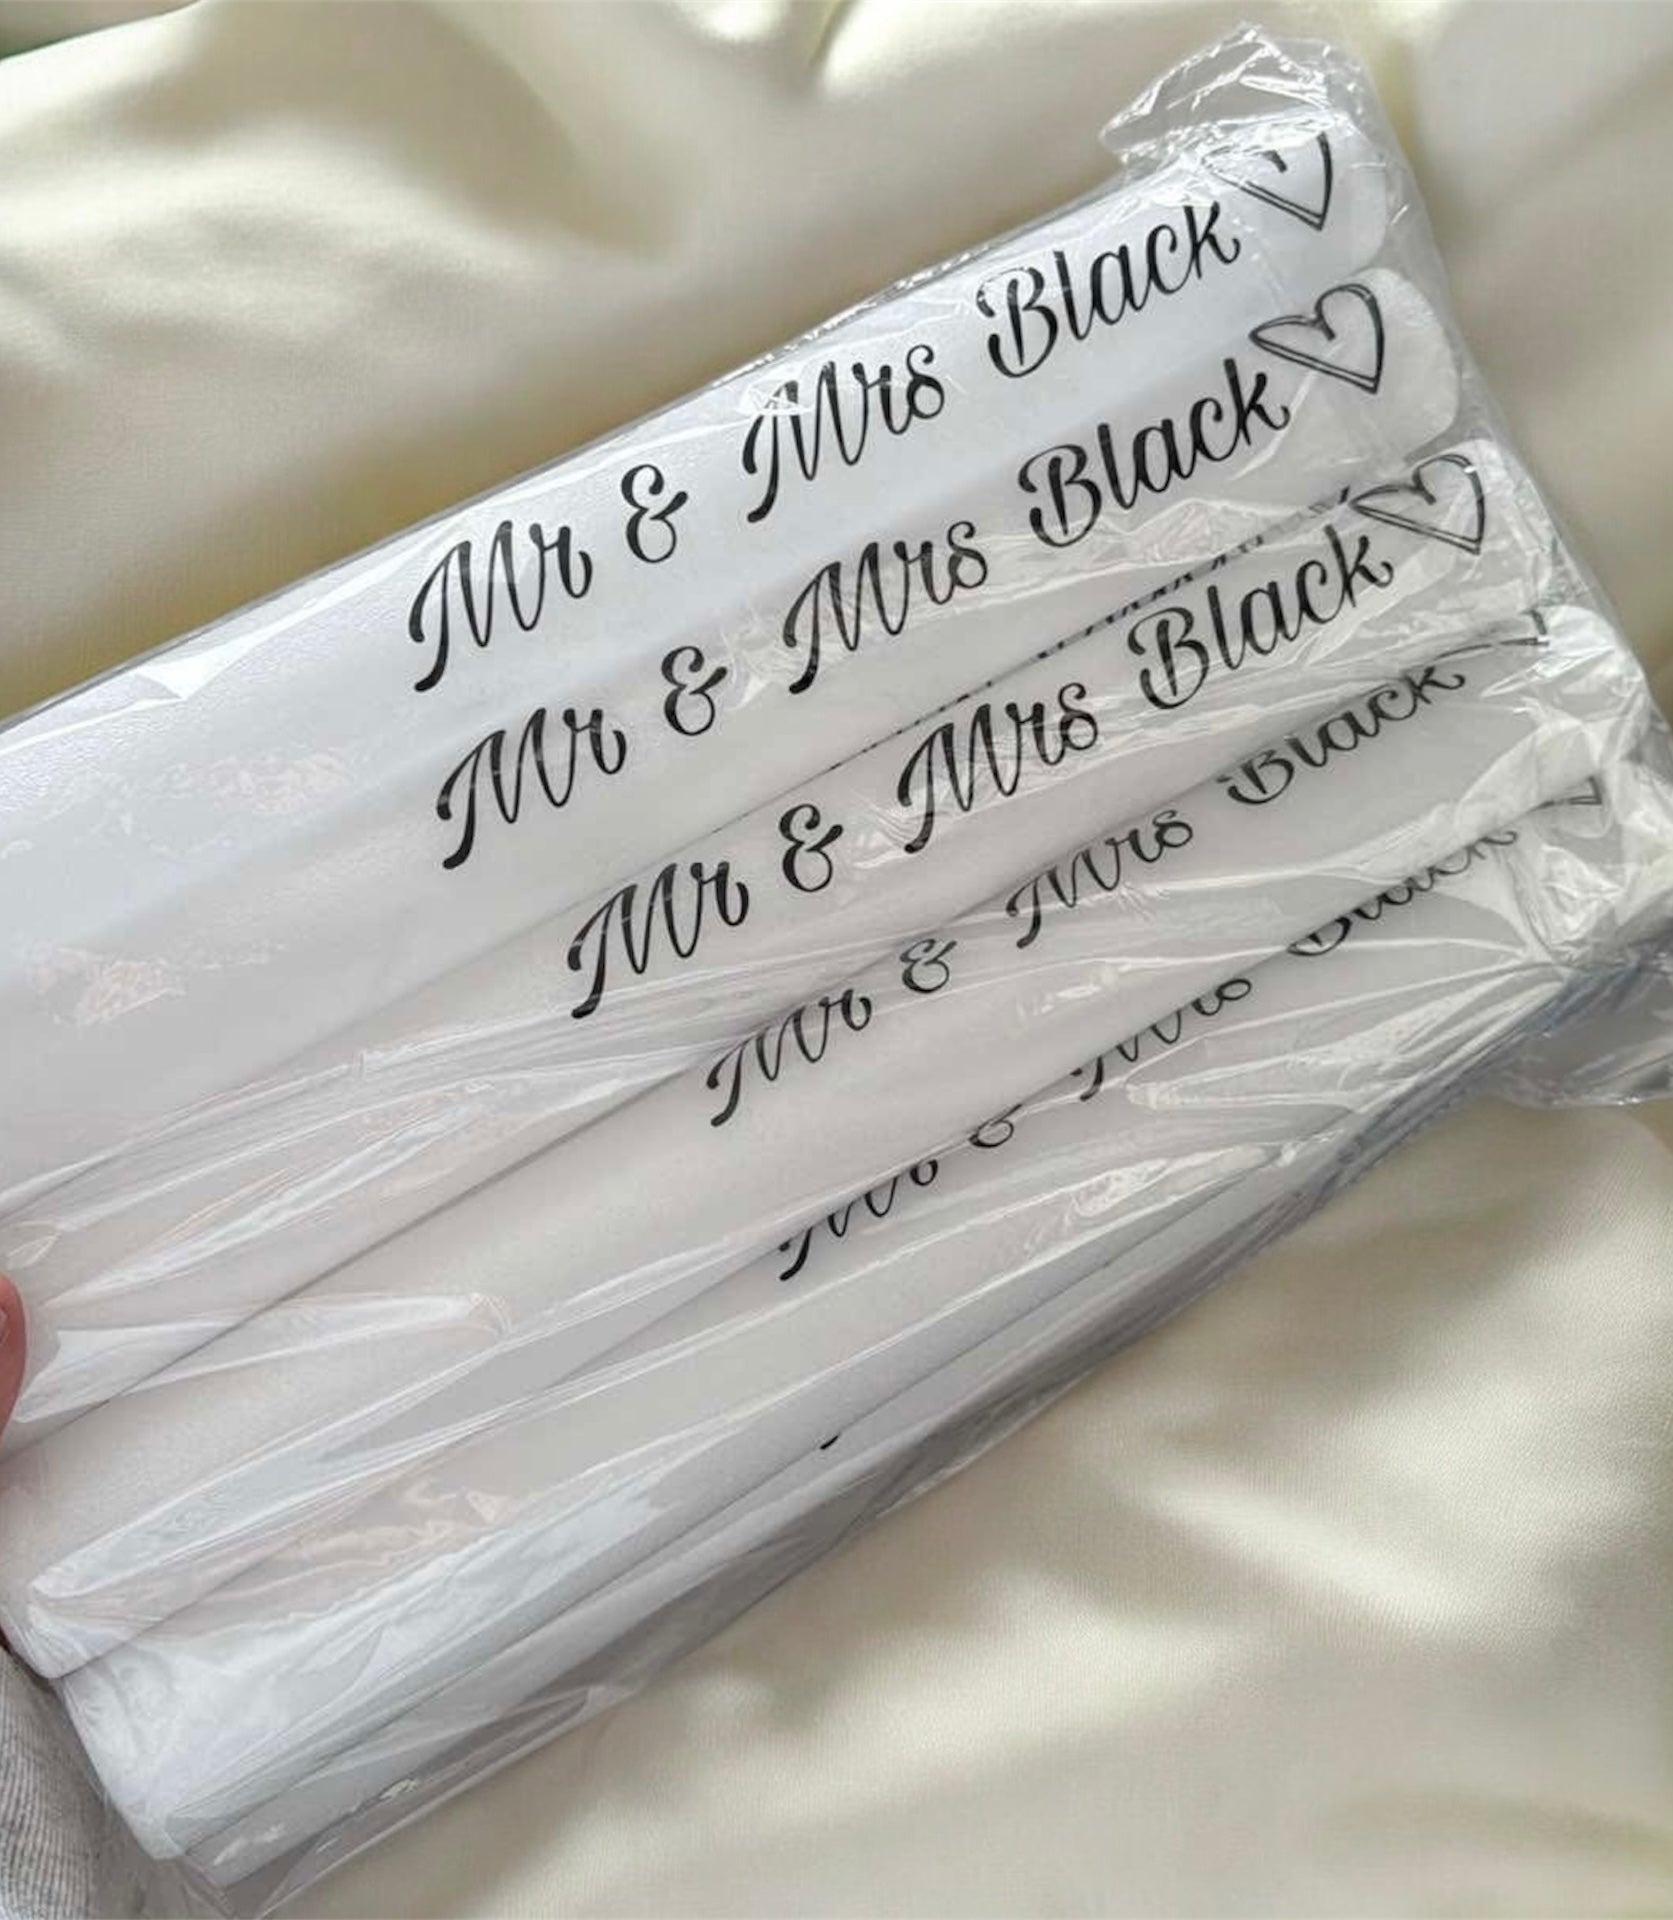 Mr & Mrs Black
Mr & Mrs Black
Mr & Mrs Black
Mr & Mrs Black
Mr & Mrs Black